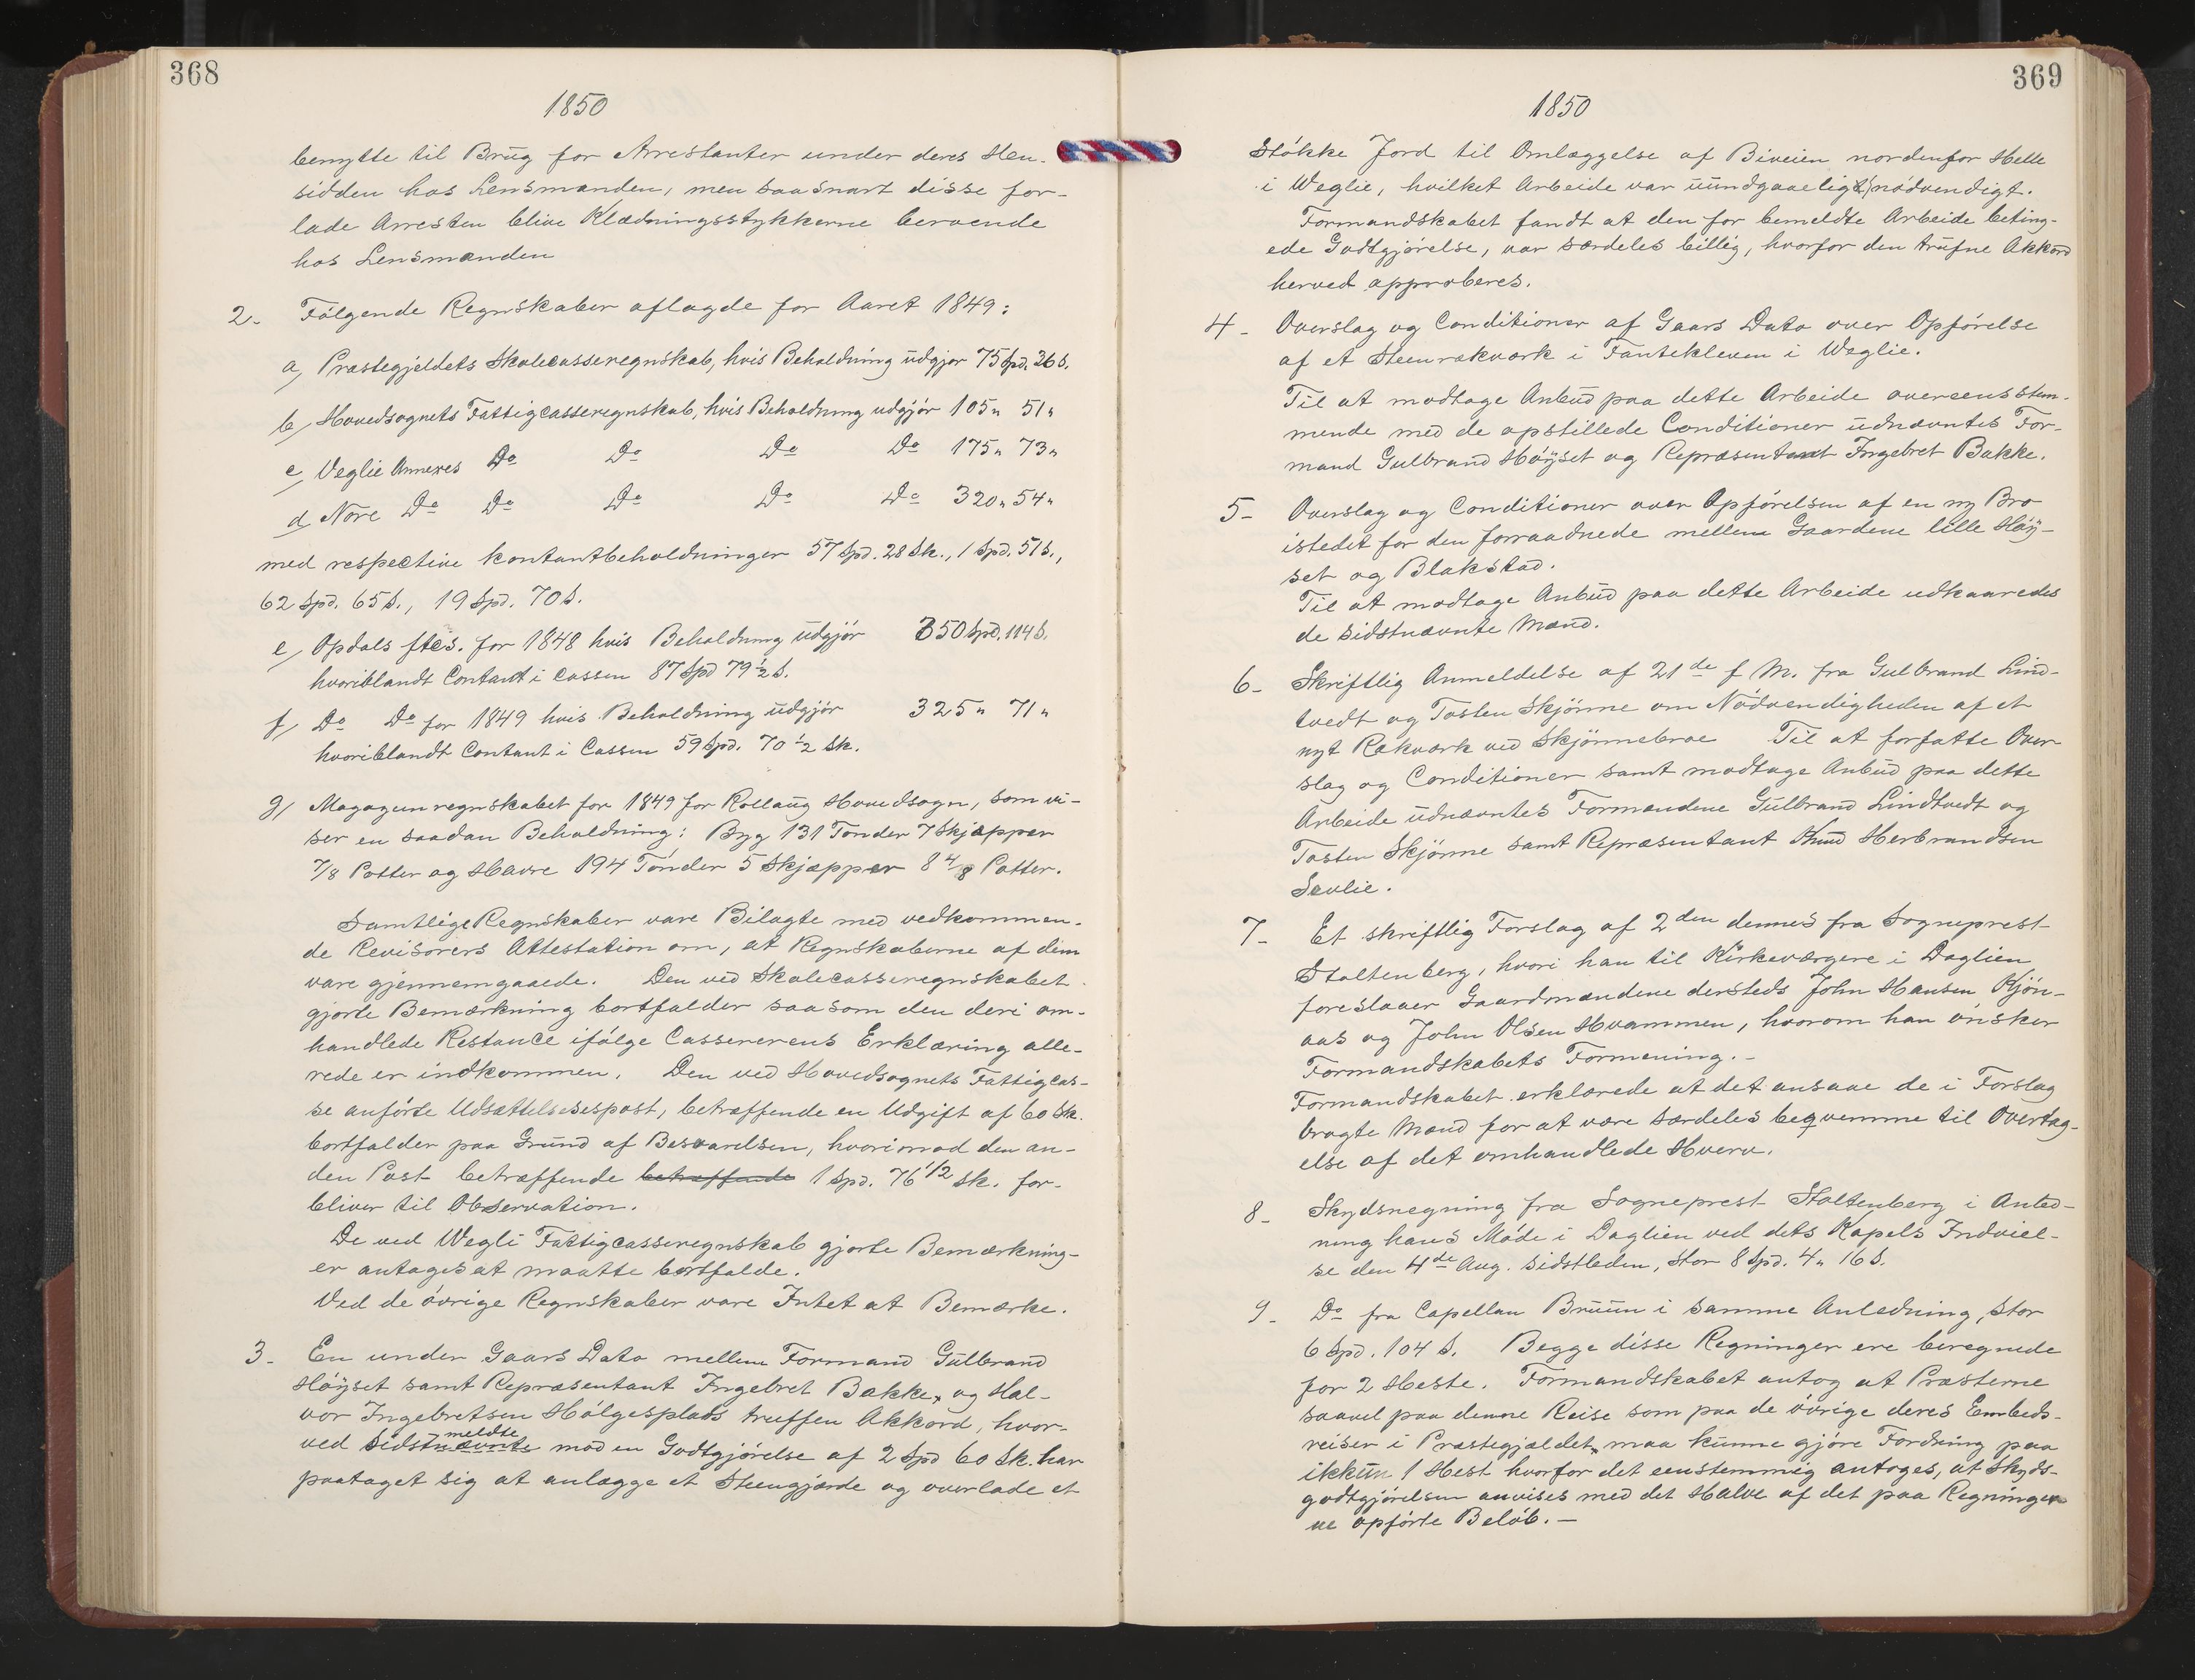 368
1850
benytte til Brug for Arrestanter under deres Hen-
sidden hos Lensmanden, men saasnart disse for-
lade Arresten blive Klædningsstykkerne beroende
hos Lensmanden
2. Følgende Regnskaber aflagde for Aaret 1849:
a, Præstegjeldets Skolecasseregnskab, hvis Beholdning udgjør 75 Spd. 36 s.
b, Hovedsognets Fattigcasseregnskab, hvis Beholdning udgjør 105 " 51 "
c, Veglie Annexes Do Do Do Do 175 " 73 "
d, Nore Do Do Do Do Do 320 " 54 "
med respective kontantbeholdninger 57 Spd. 28 Sk., 1 Spd. 51 s.,
62 Spd. 65 s., 19 Spd. 70 s.
e, Opdals ftcs. for 1848 hvis Beholdning udgjør 350 Spd. 114 s.
hvoriblandt Contant i cassen 87 Spd 79 1/2 s.
f, Do Do for 1849 hvis Beholdning udgjør 325 " 71 "
hvoriblandt Contant i Cassen 59 Spd. 70 1/2 Sk.
g, Magazinregnskabet for 1849 for Rollaug Hovedsogn, som vi-
ser en saadan Beholdning: Byg 131 Tønder 7 Skjæpper
7/8 Potter og Havre 194 Tønder 5 Skjæpper 8 4/8 Potter.
Samtlige Regnskaber vare Bilagte med vedkommen-
de Revisorers Attestation om, at Regnskaberne af dem
vare gjennemgaaede. Den ved Skolecasseregnskabet
gjorte Bemærkning bortfalder saasom den deri om-
handlede Restance ifølge Cassererens Erklæring alle-
rede er indkommen. Den ved Hovedsognets Fattigcas-
se anførte Udsættelsesespost, betræffende en Udgift af 60 Sk.
bortfalder paa Grund af Besvarelsen, hvorimod den an-
den Post betræffende betræffende 1 Spd. 76 1/2 Sk. for-
bliver til Observation.
De ved Wegli Fattigcasseregnskab gjorte Bemærkning-
er antages at maatte bortfalde.
Ved de øvrige Regnskaber vare Intet at Bemærke.
3- En under Gaars Dato mellem Formand Gulbrand
Høÿset samt Repræsentant Ingebret Bakke, og Hal-
vor Ingebretsen Hølgesplads truffen Akkord, hvor-
meldte
ved sidstnævnte mod en Godtgjørelse af 2 Spd 60 Sk. har
paataget sig at anlægge et Steengjærde og overlade et
369
1850
Støkke Jord til Omlæggelse af Biveien nordenfor Helle
i Weglie, hvilket Arbeide var uundgaaeligt nødvendigt.
Formandskabet fandt at den for bemeldte Arbeide beting-
ede Godtgjørelse, var særdeles billig, hvorfor den trufne Akkord
herved approberes.
4- Overslag og Conditioner af Gaars Dato over Opførelse
af et Steenrækværk i Fantekleven i Weglie.
Til at modtage Anbud paa dette Arbeide overeensstem-
mende med de opstillede Conditioner udnævntes For-
mand Gulbrand Høÿset og Repræsentant Ingebret Bakke.
5- Overslag og Conditioner over Opførelsen af en ny Bro
istedet for den forraadnede mellem Gaardene lille Høÿ-
set og Blakstad.
Til at modtage Anbud paa dette Arbeide udkaaredes
de sidstnævnte Mænd.
6- Skriftlig Anmeldelse af 21de f M. fra Gulbrand Lind-
tvedt og Tosten Skjønne om Nødvendigheden af et
nyt Rækværk ved Skjønnebroe Til at forfatte Over
slag og Conditioner samt modtage Anbud paa dette
Arbeide udnævntes Formændene Gulbrand Lindtvedt og
Tosten Skjønne samt Repræsentant Knud Herbrandsen
Sevlie.
7- Et skriftlig Forslag af 2den dennes fra Sogneprest
Stoltenberg, hvori han til Kirkeværgere i Daglien
foreslaaer Gaardmændene dersteds John Hansen Kjøn-
aas og John Olsen Hvammen, hvorom han ønsker
Formandskabets Formening.-
Formandskabet erklærede at det ansaae de i Forslag
bragte Mænd for at være særdeles beqvemme til Overtag-
else af det omhandlede Hverv.
8- Skydsregning fra Sogneprest Stoltenberg i Anled-
ning hans Møde i Daglien ved dets Kapels Indviel-
se den 4de Aug. sidstleden, stor 8 Spd. 4 " 16 s.
9- Do fra Capellan Bruun i samme Anledning, stor
6 Spd. 104 s. Begge disse Regninger ere beregnede
for 2 Heste. Formandskabet antog at Præsterne
saavel paa denne Reise som paa de øvrige deres Embeds-
reiser i Præstegjældet, maa kunne gjøre Fordring paa
ikkun 1 Hest hvorfor det eenstemmig antoges, at Skyds-
godtgjørelsen anvises med det Halve af det paa Regninger
ne opførte Beløb.-